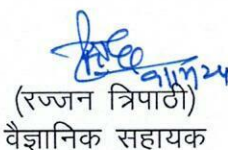 (रज्जन त्रिपाठी)
वैज्ञानिक सहायक